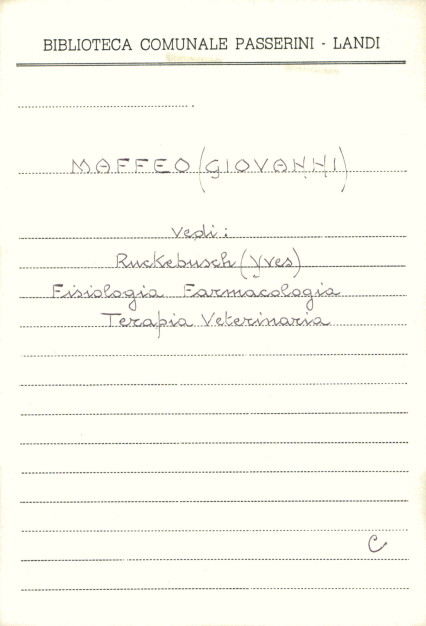 BIBLIOTECA COMUNALE PASSERINI - LANDI
MAFFEO (GIOVANNI)
Vedi:
Ruckebusch (Yves)
Fisiologia Farmacologia
Terapia Veterinaria
C